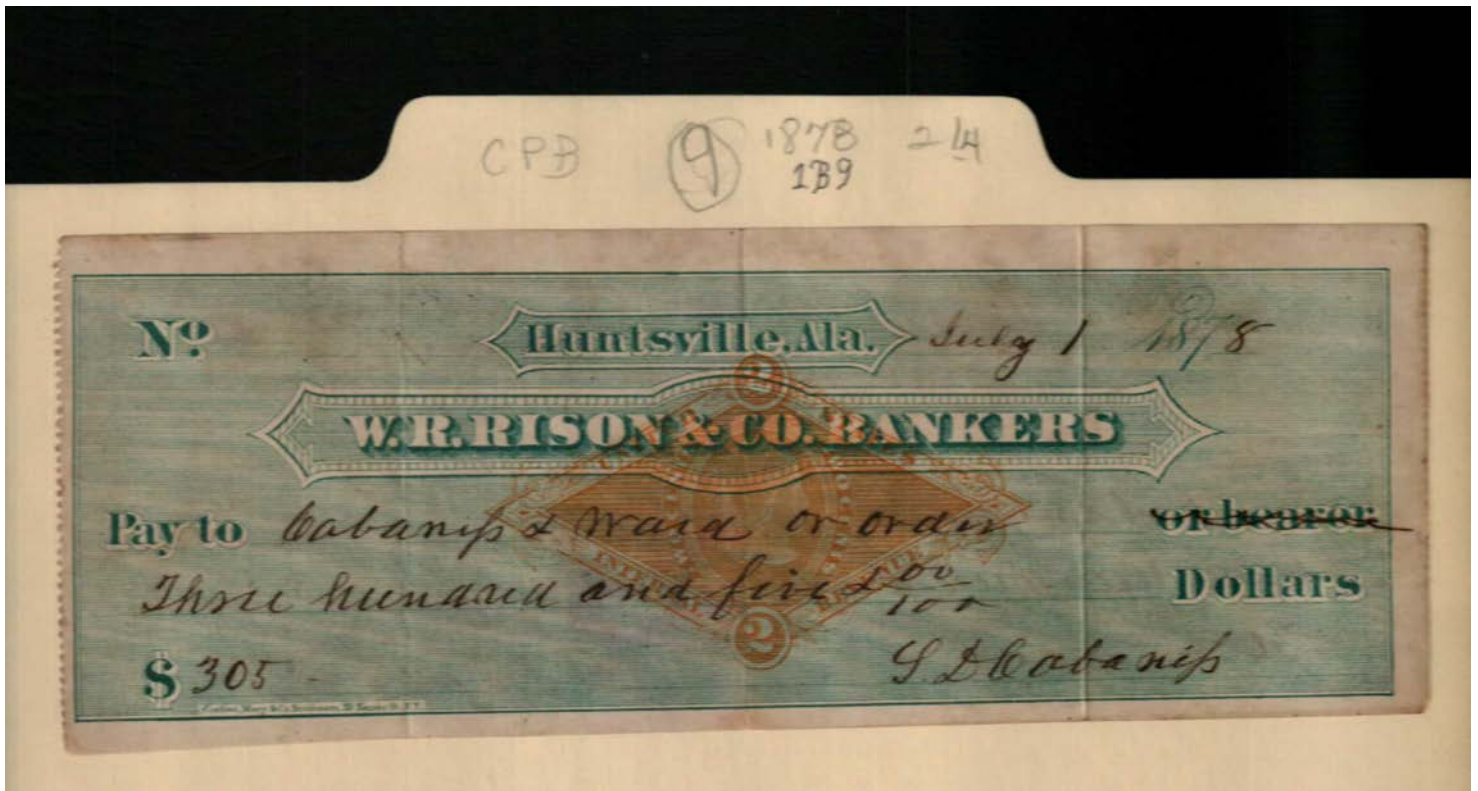 CPB 9 1878 2 14
1B9
No.
Huntsville, Ala. July 1 1878
2
W. R. RISON & CO. BANKERS
Pay to Cabaniss & Ward or order or bearer
Three hundred and five & 00/100 Dollars
2
$ 305
S D Cabaniss